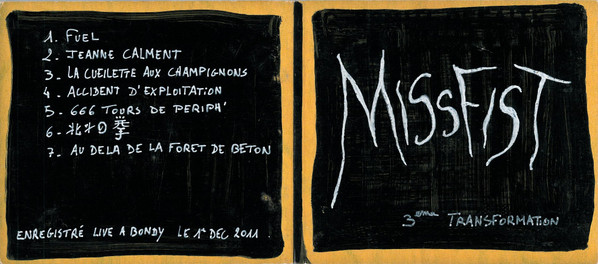 1. FUEL
2. JEANNE CALMENT
3. LA CUEILETTE AUX CHAMPIGNONS
4. ACCIDENT D'EXPLOITATION
5. 666 TOURS DE PERIPH'
6.
7. AU DELA DE LA FORET DE BETON
ENREGISTRÉ LIVE A BONDY LE 1er DEC 2011.
MISSFIST
3eme TRANSFORMATION